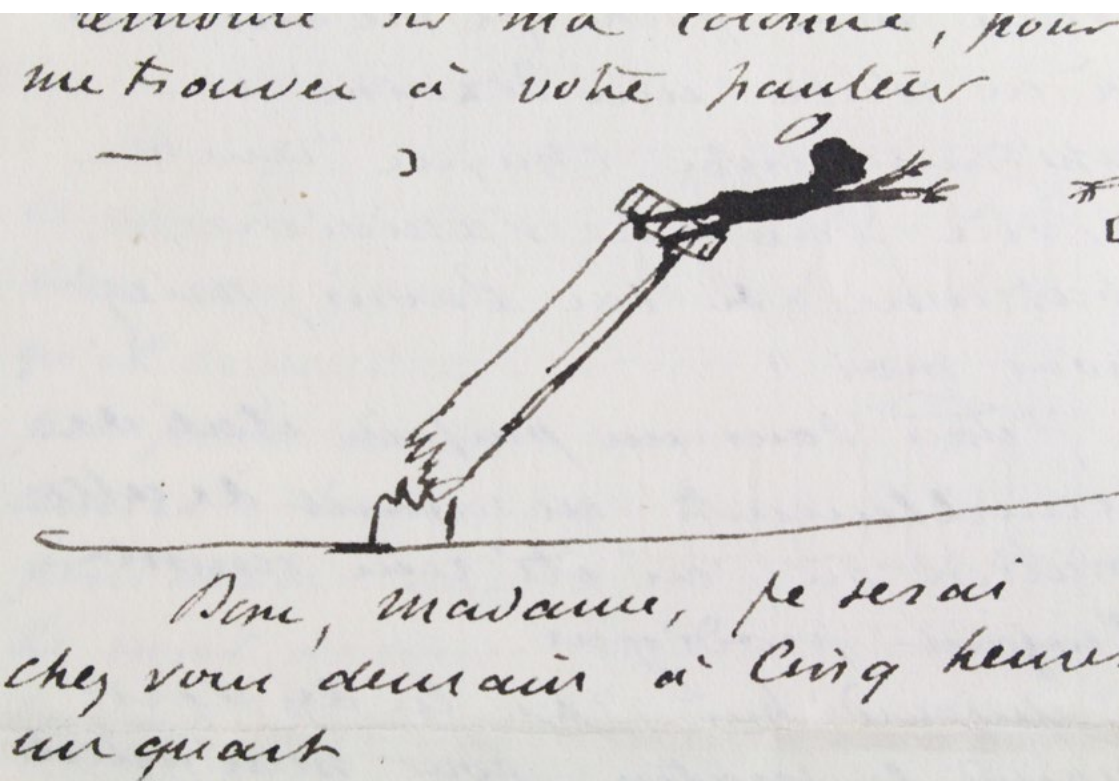 remonte sur ma colonne, pour
me trouver à votre hauteur
Donc, Madame, je serai
chez vous demain à Cinq heures
un quart